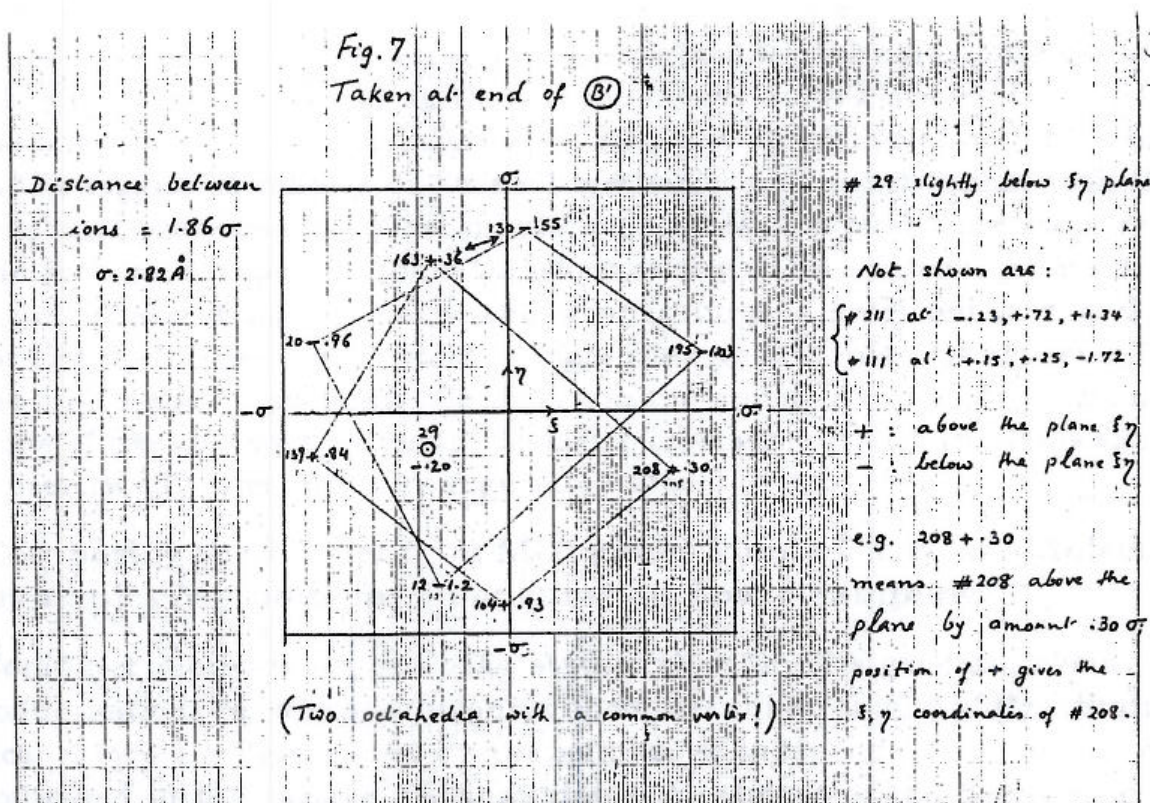 Fig. 7
Taken at end of (B')
Distance between
ions = 1.86 σ
σ = 2.82 Å
σ
130 - .155
163 + .36
20 - .96
195 - 1.03
η
-σ
σ
ξ
29
-.20
139 + .84
208 + .30
12 - 1.2
104 + .93
-σ
(Two octahedra with a common vertex!)
# 29 slightly below ξη plane
Not shown are:
# 211 at -.23, +.72, +1.34
# 111 at +.15, +.25, -1.72
+ : above the plane ξη
- : below the plane ξη
e.g. 208 + .30
means #208 above the
plane by amount .30 σ,
position of + gives the
ξ, η coordinates of #208.